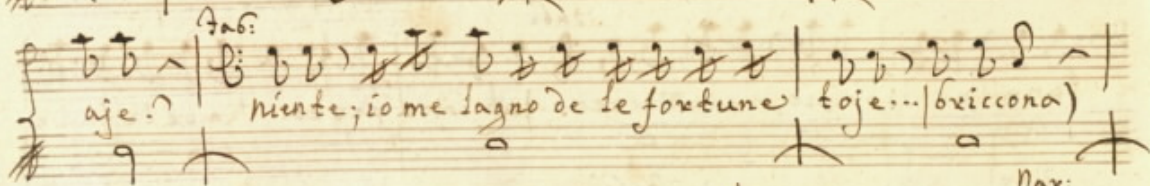 Fab:
aje.? niente; io me lagno de le fortune toje...(briccona)